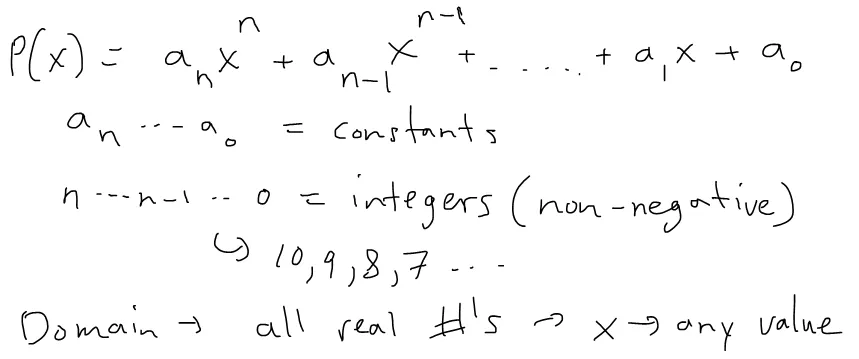 P(x) = aₙxⁿ + aₙ₋₁xⁿ⁻¹ + ..... + a₁x + a₀
aₙ ... a₀ = constants
n ... n-1 .. 0 = integers (non-negative)
↪ 10, 9, 8, 7 ...
Domain → all real #'s → x → any value